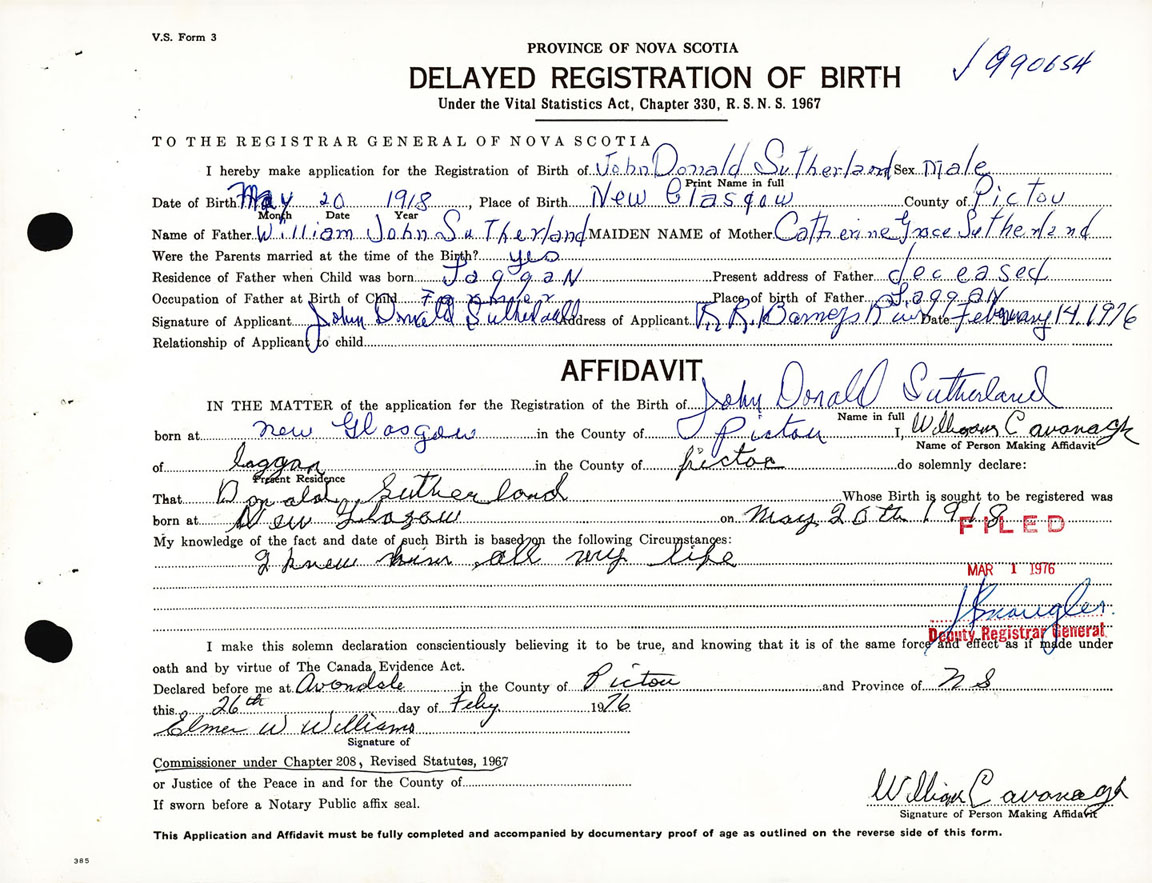 V.S. Form 3
PROVINCE OF NOVA SCOTIA
DELAYED REGISTRATION OF BIRTH
✓ 990654
Under the Vital Statistics Act, Chapter 330, R. S. N. S. 1967
TO THE REGISTRAR GENERAL OF NOVA SCOTIA
I hereby make application for the Registration of Birth of John Donald Sutherland Sex Male
Print Name in full
Date of Birth May 20 1918, Place of Birth New Glasgow County of Pictou
Month Date Year
Name of Father William John Sutherland MAIDEN NAME of Mother Catherine Grace Sutherland
Were the Parents married at the time of the Birth? yes
Residence of Father when Child was born Laggan Present address of Father deceased
Occupation of Father at Birth of Child Farmer Place of birth of Father Laggan
Signature of Applicant John Donald Sutherland Address of Applicant R.R.1 Barneys River Date February 14, 1976
Relationship of Applicant to child
AFFIDAVIT
IN THE MATTER of the application for the Registration of the Birth of John Donald Sutherland
Name in full
born at New Glasgow in the County of Pictou I, William Cavanagh
Name of Person Making Affidavit
of laggan in the County of pictou do solemnly declare:
Present Residence
That Donald Sutherland Whose Birth is sought to be registered was
born at New Glasgow on May 20th 1918
FILED
My knowledge of the fact and date of such Birth is based on the following Circumstances:
I knew him all my life
MAR 1 1976
Deputy Registrar General
I make this solemn declaration conscientiously believing it to be true, and knowing that it is of the same force and effect as if made under
oath and by virtue of The Canada Evidence Act.
Declared before me at Avondale in the County of Pictou and Province of N S
this 26th day of Feby 1976
Elmer W Williams
Signature of
Commissioner under Chapter 208, Revised Statutes, 1967
or Justice of the Peace in and for the County of
If sworn before a Notary Public affix seal.
William Cavanagh
Signature of Person Making Affidavit
This Application and Affidavit must be fully completed and accompanied by documentary proof of age as outlined on the reverse side of this form.
385